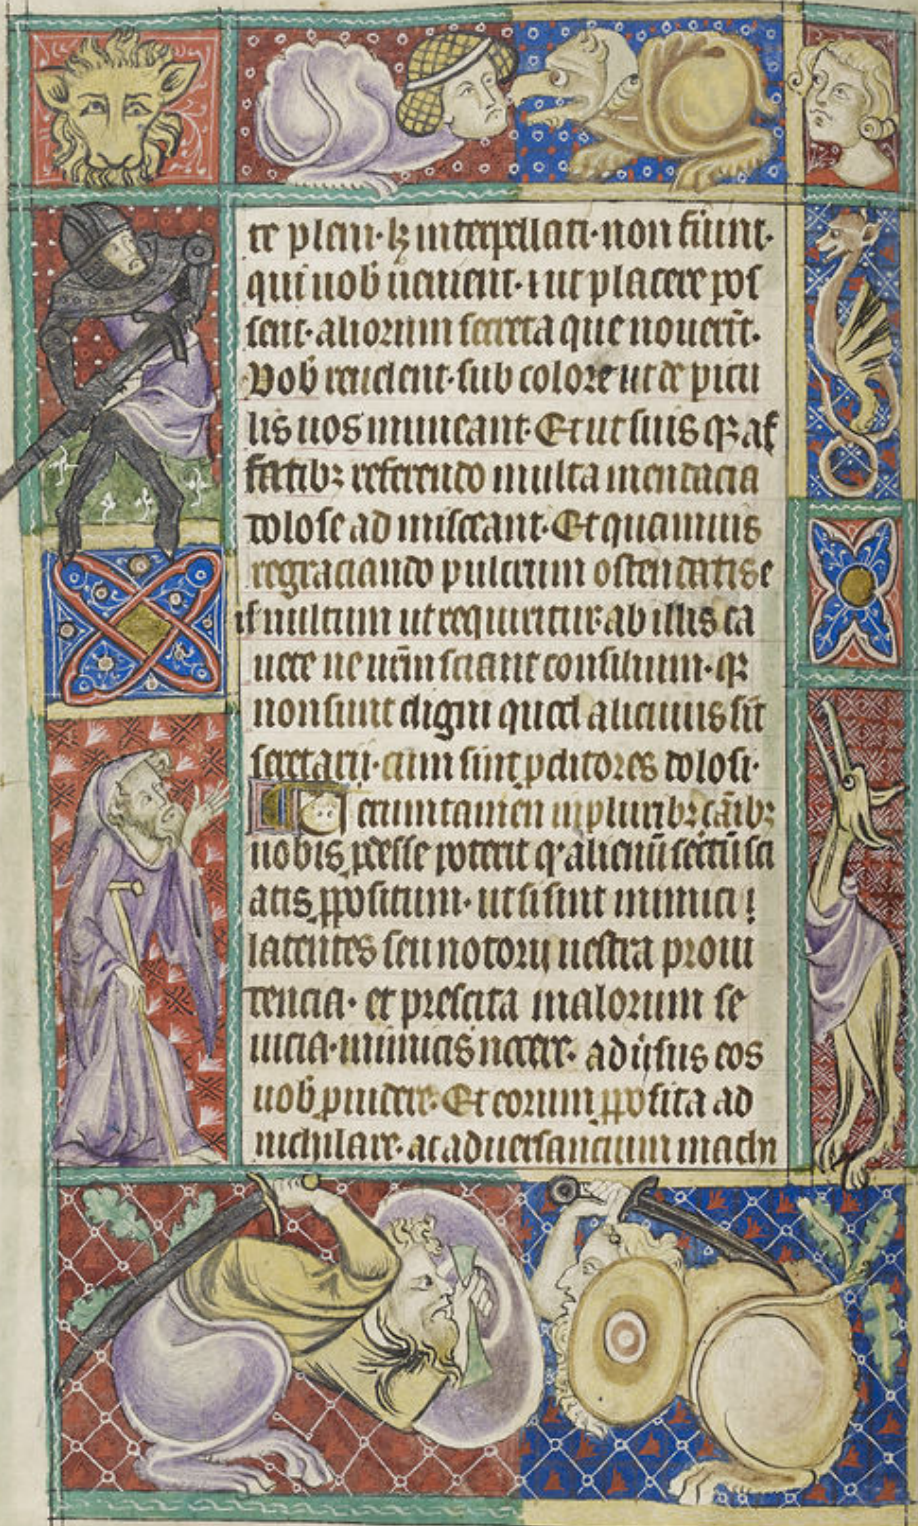 te pleni· lz interpellati· non fiunt·
qui uob uenient· ⁊ ut placere pos
sent· aliorum secreta que nouerit̄·
Vob reuelent· sub colore ut de picu
lis uos muneant· Et ut suis qz af
fatibz referendo multa mendacia
dolose ad misceant· Et quamuis
regraciando pulcrum ostendatis e
is uultum ut requiritur· ab illis ca
uete ne urm̄ sciant consilium· qz
non sunt digni quod alicuius sit̄
secretarij· cum sint ꝓditores dolosi·
erumtamen in pluribz cāibz
uobis ꝓdesse poterit
atis ꝓpositum· ut si sint inimici
latentes seu notorij uestra proui
dencia· et prescita malorum se
uicia· inimicis nocere· ad ip̄ius eos
uob ꝓuidere· Et eorum ꝓposita ad
nichilare· ac aduersancium machn